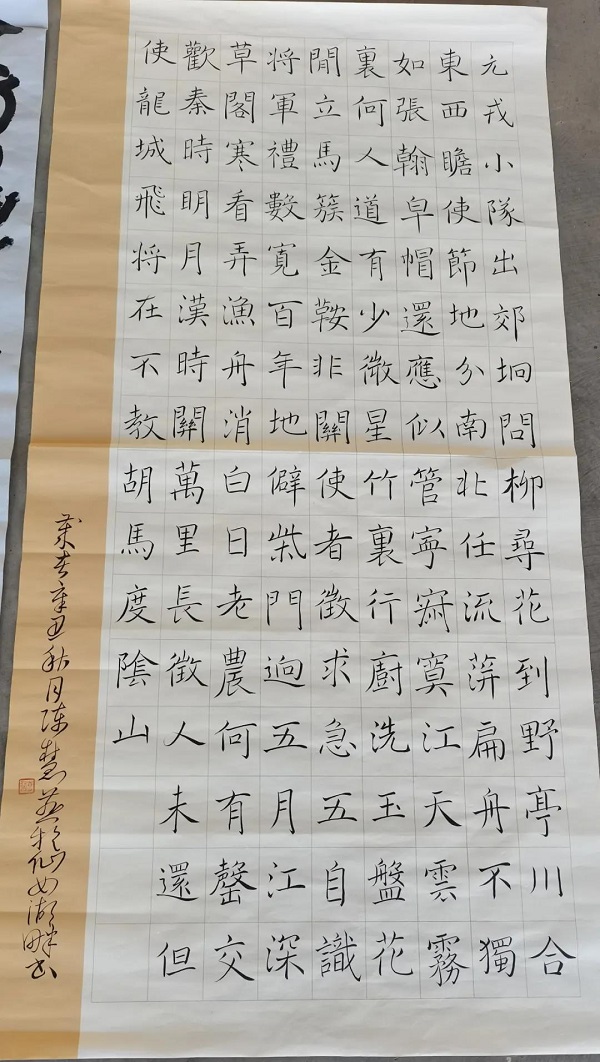 元戎小隊出郊坰問柳尋花到野亭川合
東西瞻使節地分南北任流萍扁舟不獨
如張翰皁帽還應似管寧寂寞江天雲霧
裏何人道有少微星竹裏行廚洗玉盤花
閒立馬簇金鞍非關使者徵求急五自識
將軍禮數寬百年地僻柴門迥五月江深
草閣寒看弄漁舟消白日老農何有罄交
歡秦時明月漢時關萬里長徵人未還但
使龍城飛將在不教胡馬度陰山
歲在辛丑秋月陳慧於仙女湖畔書